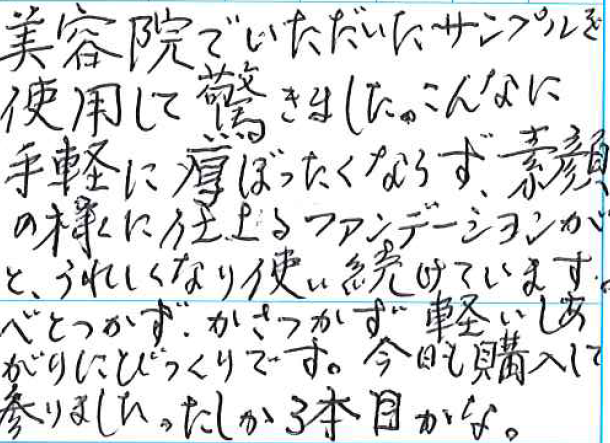 美容院でいただいたサンプルを
使用して驚きました。こんなに
手軽に厚ぼったくならず、素顔
の様に仕上るファンデーションが
と、うれしくなり使い続けています。
べとつかず、かさつかず 軽いしあ
がりにびっくりです。今日も購入して
参りました。たしか3本目かな。